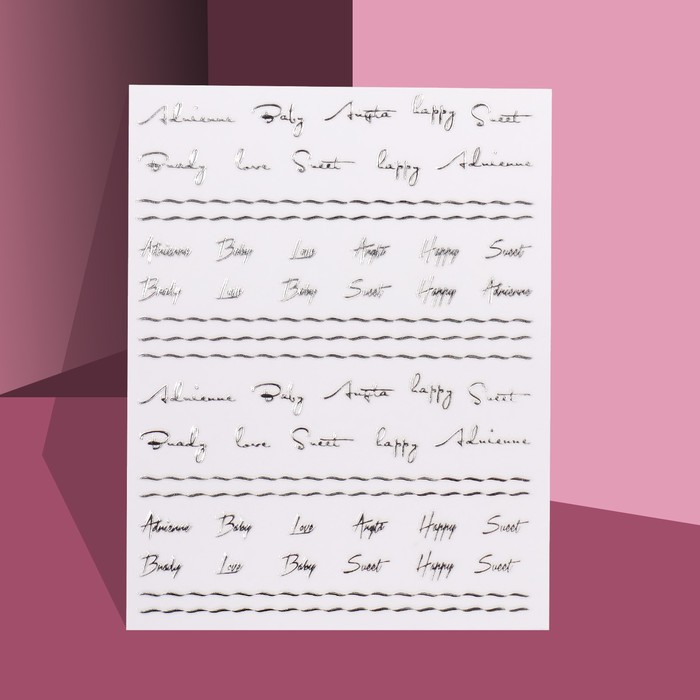 Adrienne Baby Angta happy Sweet
Brady love Sweet happy Adrienne
Adrienne Baby Love Angta Happy Sweet
Brady Love Baby Sweet Happy Adrienne
Adrienne Baby Angta happy Sweet
Brady love Sweet happy Adrienne
Adrienne Baby Love Angta Happy Sweet
Brady Love Baby Sweet Happy Sweet